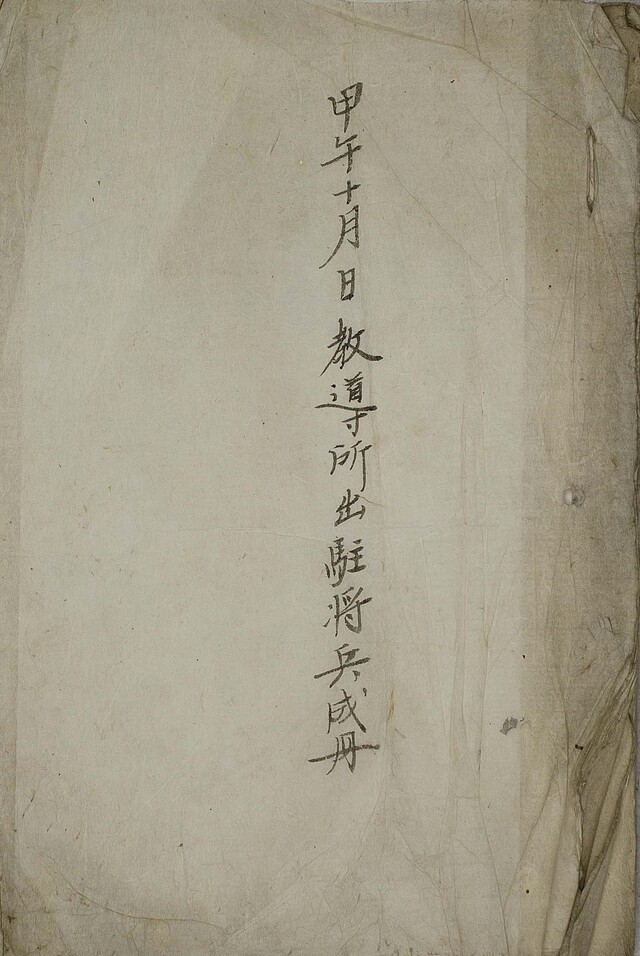 甲午十月日教導所出駐將兵成冊